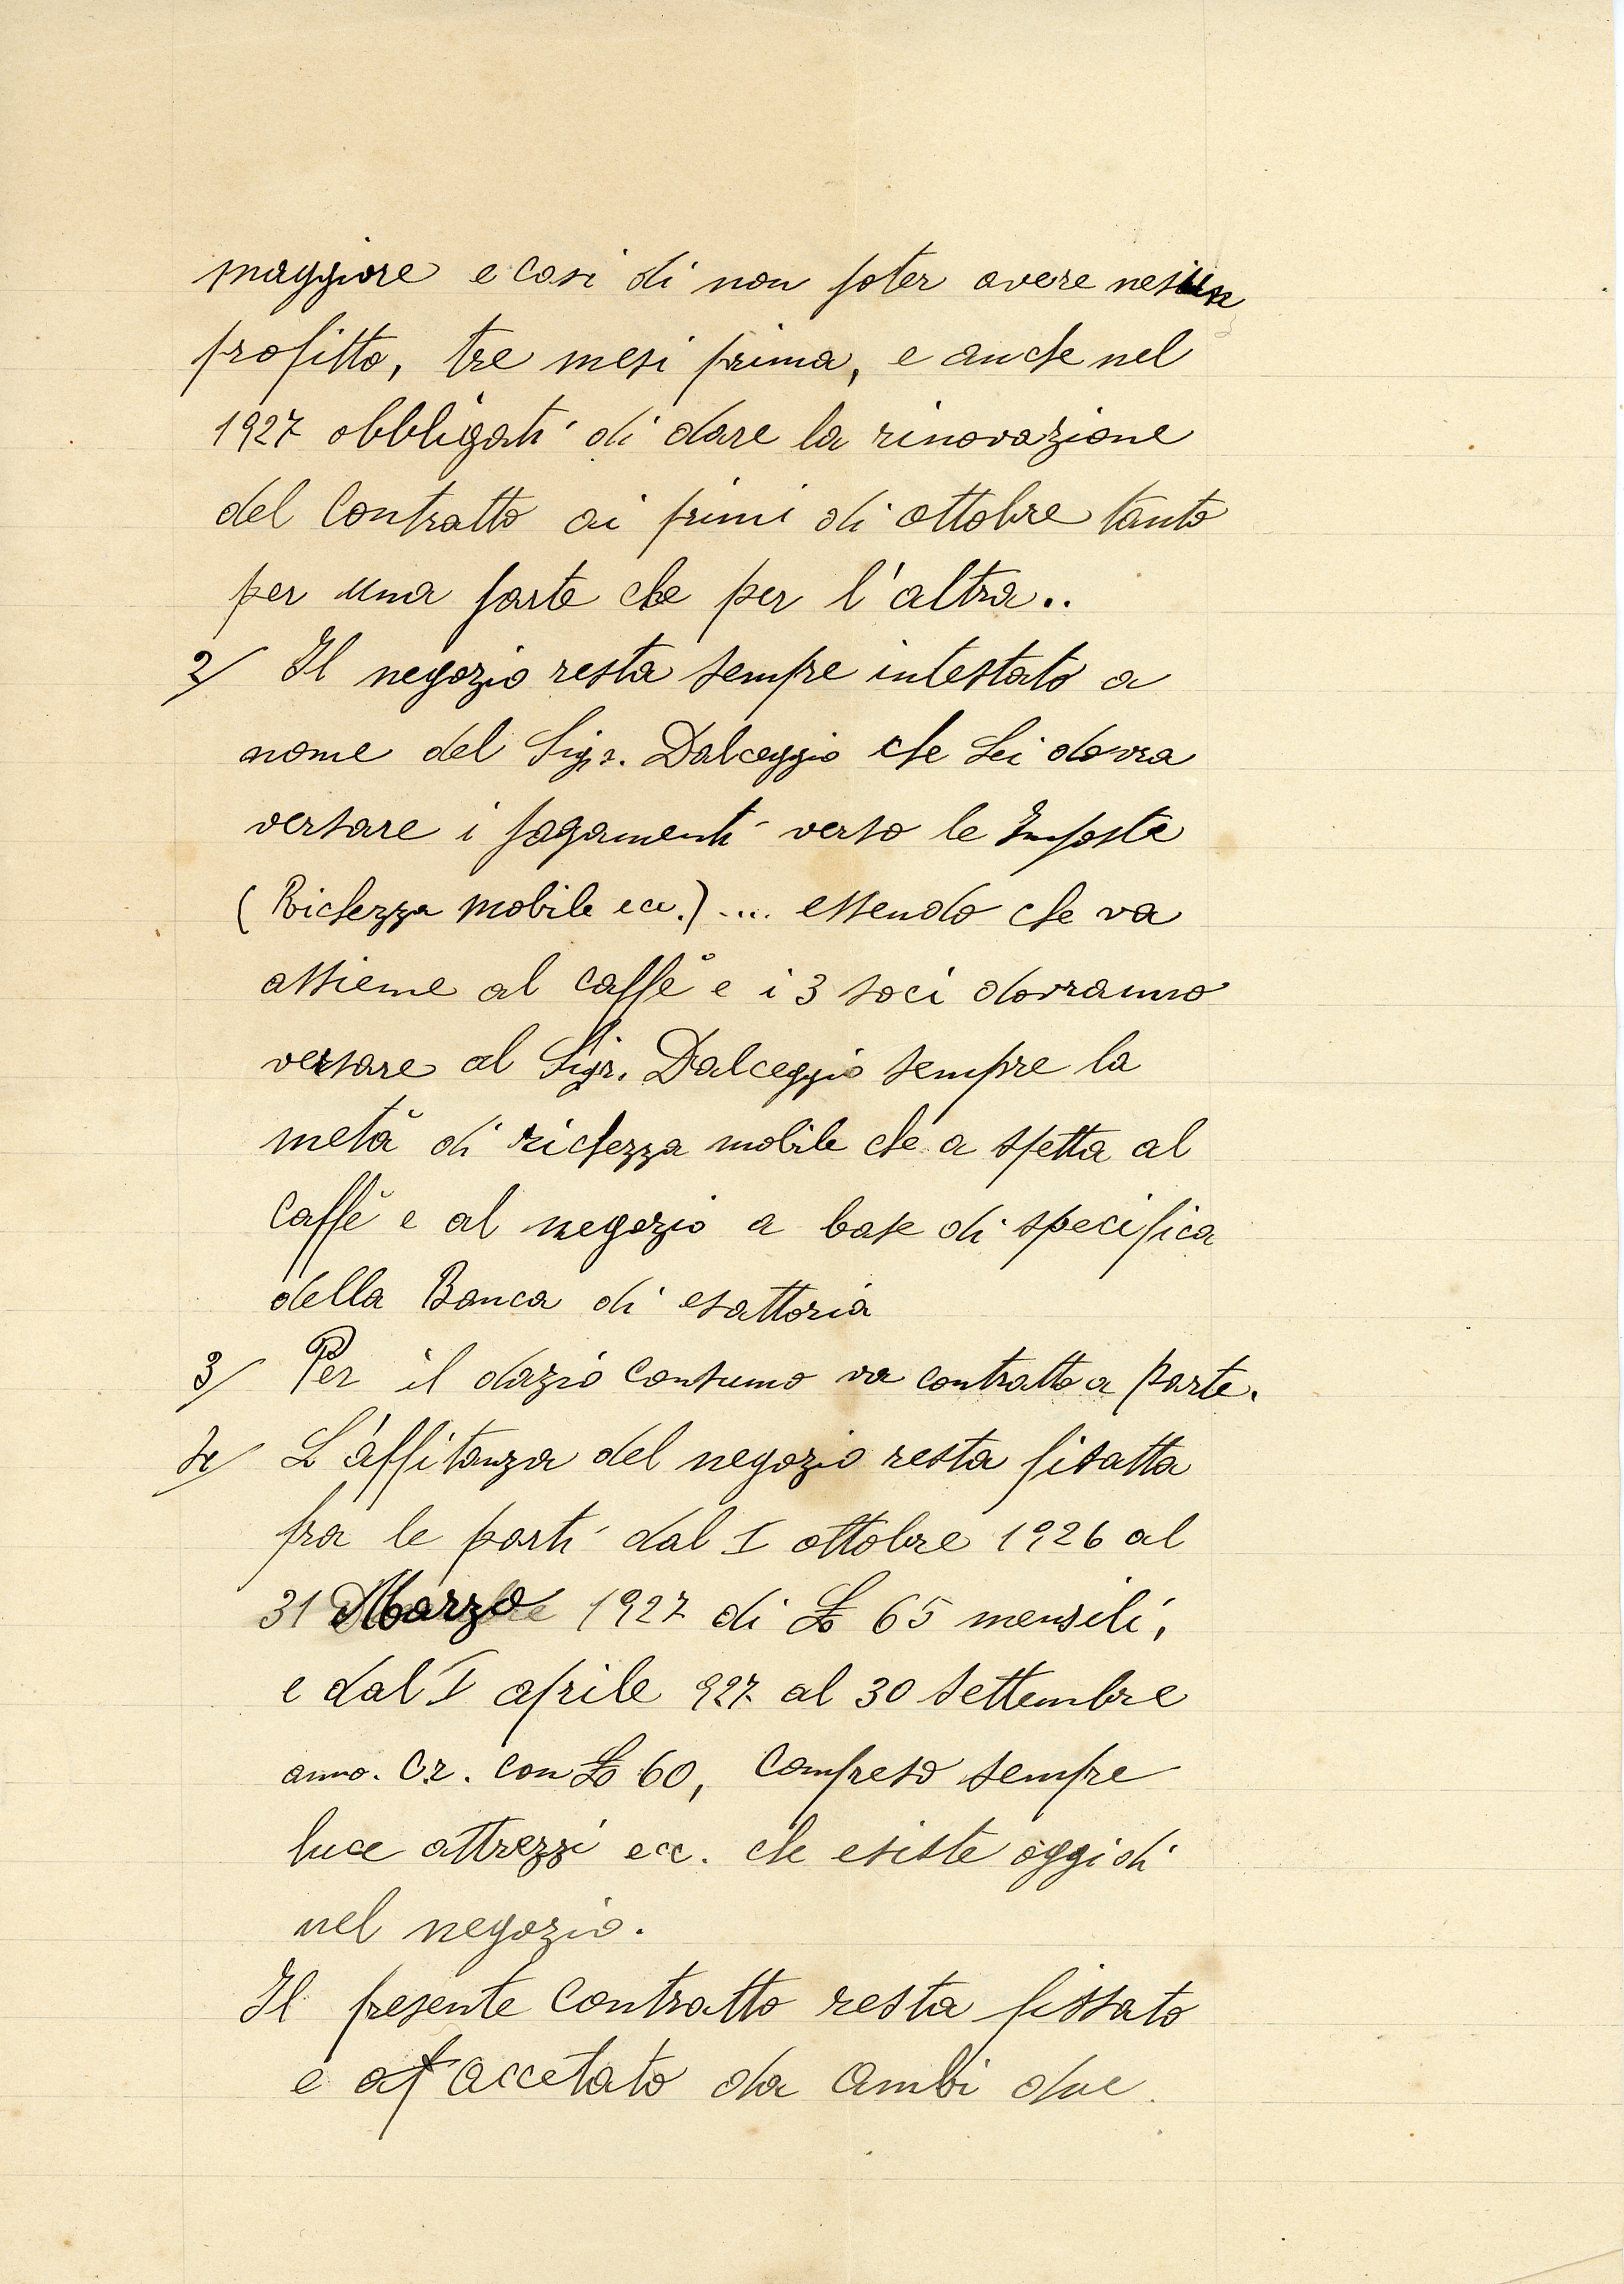 maggiore e cosi di non poter avere nesun
profitto, tre mesi prima, e anche nel
1927 obbligati di dare la rinovazione
del Contratto ai primi di ottobre tanto
per una parte che per l'altra..
2/ Il negozio resta sempre intestato a
nome del Sigr. Dalceggio che Lei dovra
versare i pagamenti verso le Imposte
(Richezza mobile ecc.) .... essendo che va
assieme al caffè e i 3 soci dovranno
versare al Sigr. Dalceggio sempre la
metà di richezza mobile che a spetta al
Caffè e al negozio a base di specifica
della Banca di esattoria
3/ Per il dazio consumo va contratto a parte.
4/ L'affitanza del negozio resta fisatta
fra le parti dal I ottobre 1926 al
31 Marzo 1927 di £ 65 mensili,
e dal I aprile 927 al 30 settembre
anno. Cr. con £ 60, Compreso sempre
luce attrezzi ecc. che esiste oggi di
nel negozio.
Il presente Contratto resta fissato
e accetato da Ambi due